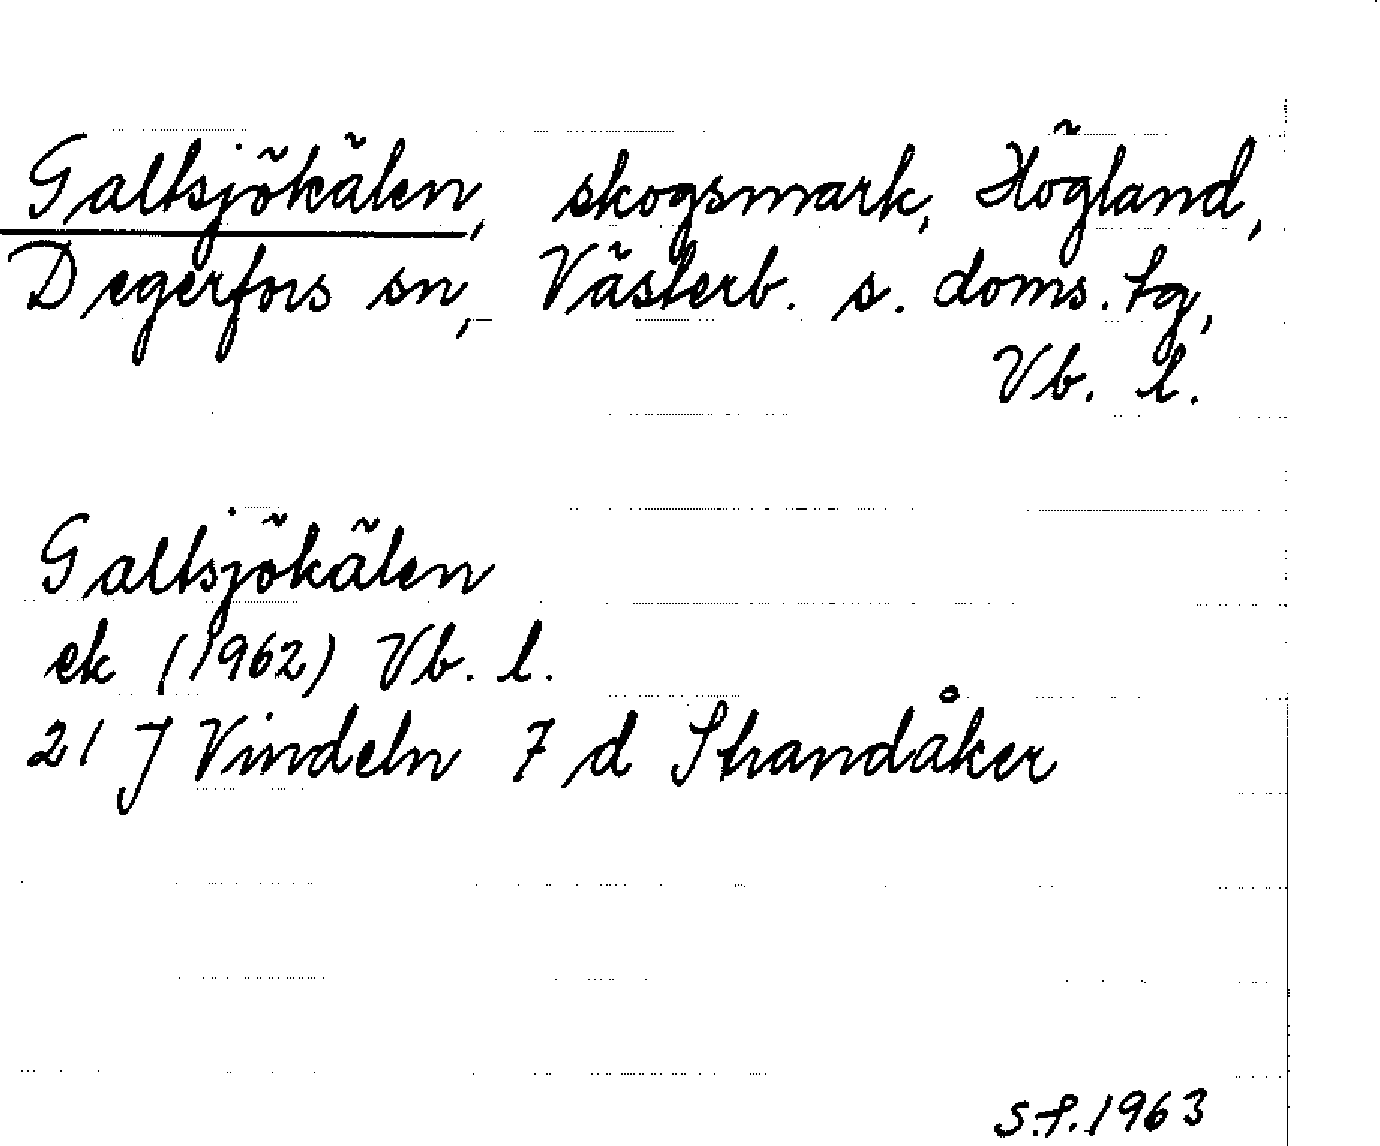 Galtsjökälen, skogsmark, Högland,
Degerfors sn, Västerb. s. doms. tg,
Vb. l.
Galtsjökälen
ek (1962) Vb. l.
21 J Vindeln 7 d Strandåker
S.F. 1963